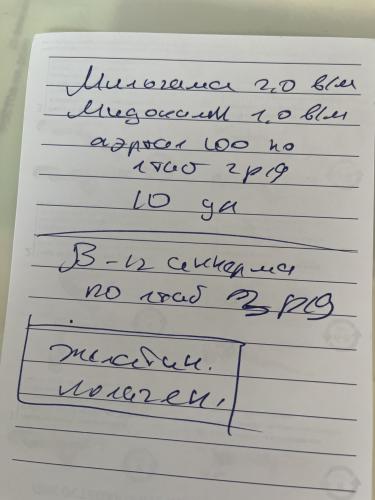 Мильгамма 2,0 в/м
Мидокалм 1.0 в/м
аэртал 100 по
1таб 2 р/д
10 дн
В-12 анкерман
по 1таб 3 р/д
желатин.
коллаген.